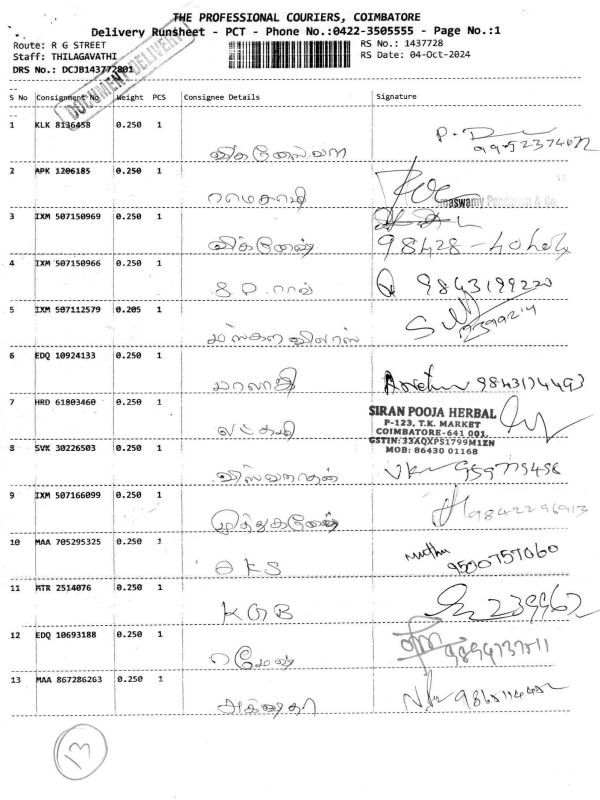 THE PROFESSIONAL COURIERS, COIMBATORE
Delivery Runsheet - PCT - Phone No.:0422-3505555 - Page No.:1
Route: R G STREET
Staff: THILAGAVATHI
DRS No.: DCJB143772801
RS No.: 1437728
RS Date: 04-Oct-2024
DOCUMENT DELIVERY
S No Consignment No Weight PCS Consignee Details Signature
1 KLK 8136458 0.250 1
2 APK 1206185 0.250 1
3 IXM 507150969 0.250 1 விக்னேஷ்
4 IXM 507150966 0.250 1 S P. ராவ் 9843199220
5 IXM 507112579 0.205 1
6 EDQ 10924133 0.250 1 மாலதி
7 HRD 61803460 0.250 1 லட்சுமி
SIRAN POOJA HERBAL
P-123, T.K. MARKET
COIMBATORE-641 001.
GSTIN:33AQXPS1799M1ZN
MOB: 86430 01168
8 SVK 30226503 0.250 1 விஸ்வநாதன்
9 IXM 507166099 0.250 1 முத்துகணேஷ் 9842296913
10 MAA 705295325 0.250 1 A K S muthu 9500757060
11 MTR 2514076 0.250 1 K G B
12 EDQ 10693188 0.250 1 ரமேஷ்
13 MAA 867286263 0.250 1
13